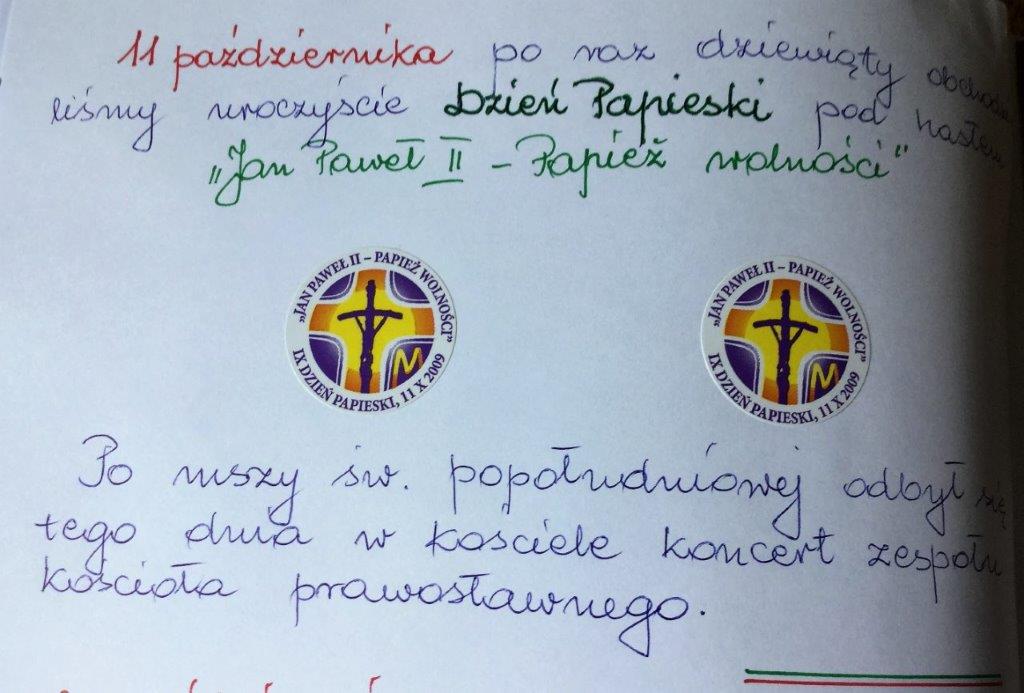 11 października po raz dziewiąty obchodzi
liśmy uroczyście Dzień Papieski pod hasłem
„Jan Paweł II – Papież wolności"
„JAN PAWEŁ II – PAPIEŻ WOLNOŚCI”
IX DZIEŃ PAPIESKI, 11 X 2009
M
„JAN PAWEŁ II – PAPIEŻ WOLNOŚCI”
IX DZIEŃ PAPIESKI, 11 X 2009
M
Po mszy św. popołudniowej odbył się
tego dnia w kościele koncert zespołu
kościoła prawosławnego.